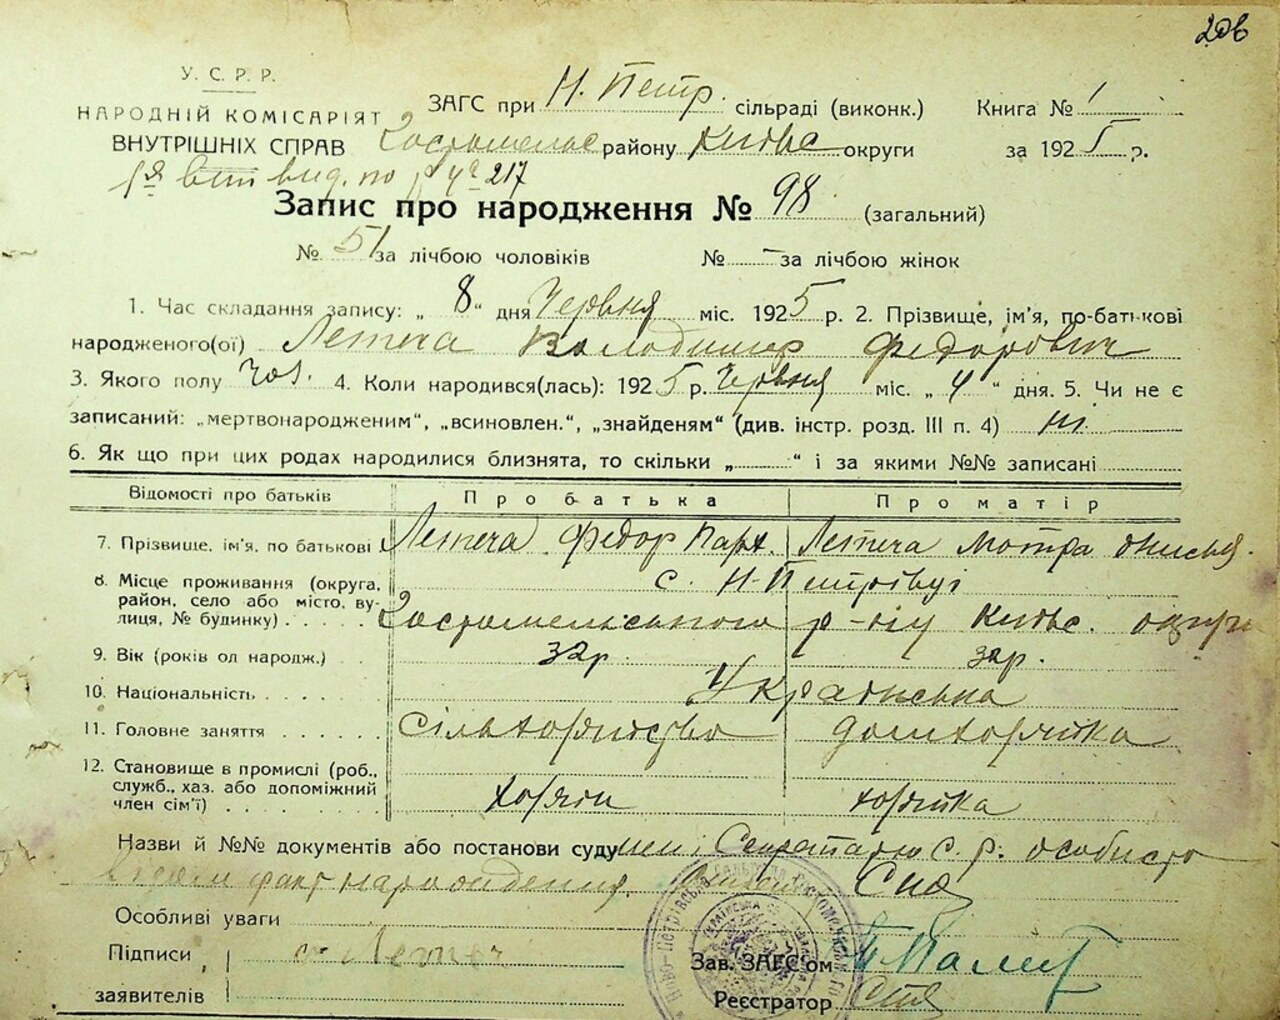 208
У. С. Р. Р.
НАРОДНІЙ КОМІСАРІЯТ
ВНУТРІШНІХ СПРАВ
ЗАГС при Н. Петр. сільраді (виконк.)
Гостомельс району Київс округи
Книга № 1
за 1925 р.
вид. по № 217
Запис про народження № 98 (загальний)
№ 51 за лічбою чоловіків № – за лічбою жінок
1. Час складання запису: „ 8 “ дня Червня міс. 1925 р. 2. Прізвище, ім'я, по-батькові
народженого(ої) Летеча Володимир Федорович
3. Якого полу чол. 4. Коли народився(лась): 1925 р. Червня міс. „ 4 “ дня. 5. Чи не є
записаний: „мертвонародженим“, „всиновлен.“, „знайденям“ (див. інстр. розд. III п. 4) ні
6. Як що при цих родах народилися близнята, то скільки „ “ і за якими №№ записані
Відомості про батьків Про батька Про матір
7. Прізвище, ім'я, по батькові Летеча Федор Парх. Летеча Мотра
8. Місце проживання (округа, район, село або місто, вулиця, № будинку) с. Н-Петрівці
Гостомельського р-ну Київс. округи
9. Вік (років од народж.) 32 р. 32 р.
10. Національність Українська
11. Головне заняття сільхозяйство домхозяйка
12. Становище в промислі (роб., служб., хаз. або допоміжний член сім'ї) хозяїн хозяйка
Назви й №№ документів або постанови суду мені Секретарю с. р. особисто
відом факт народження.
Особливі уваги
Підписи заявителів Летеч
Зав. ЗАГС'ом
Реєстратор